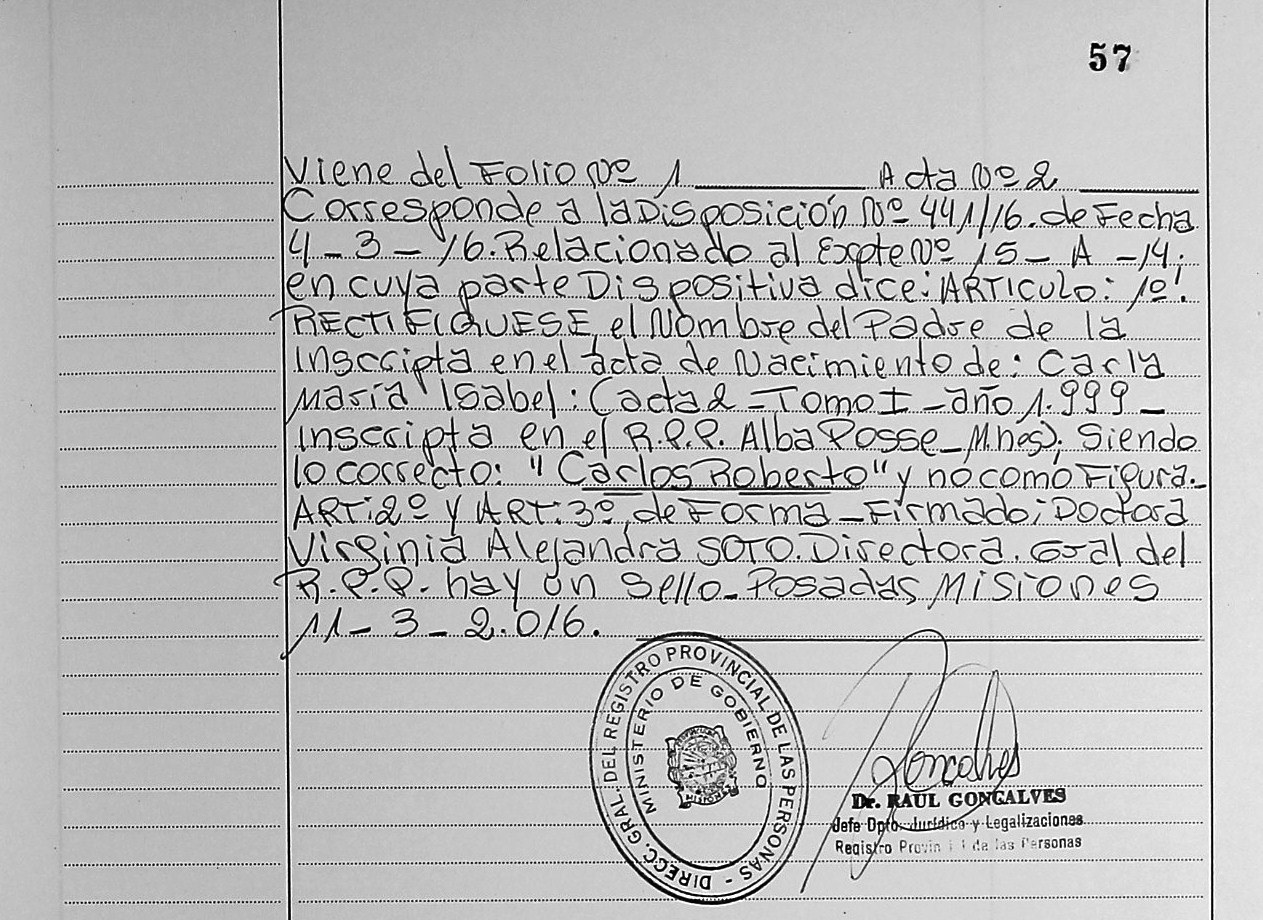 57
Viene del Folio Nº 1 Acta Nº 2
Corresponde a la Disposición Nº 441/16. de Fecha
4-3-16. Relacionado al Expte Nº 15-A-14;
en cuya parte Dispositiva dice: ARTICULO: 1º.
RECTIFIQUESE el Nombre del Padre de la
Inscripta en el acta de Nacimiento de: Carla
María Isabel: (acta 2 - Tomo I - año 1.999 -
Inscripta en el R.P.P. Alba Posse - M.nes); Siendo
lo correcto: "Carlos Roberto" y no como Figura.-
ART: 2º y ART: 3º, de Forma - Firmado; Doctora
Virginia Alejandra SOTO. Directora. Gral del
R.P.P. hay un Sello - Posadas Misiones
11-3-2.016.
DIRECC. GRAL. DEL REGISTRO PROVINCIAL DE LAS PERSONAS -
MINISTERIO DE GOBIERNO
MISIONES
Goncalves
Dr. RAUL GONCALVES
Jefe Dpto. Jurídico y Legalizaciones
Registro Provincial de las Personas